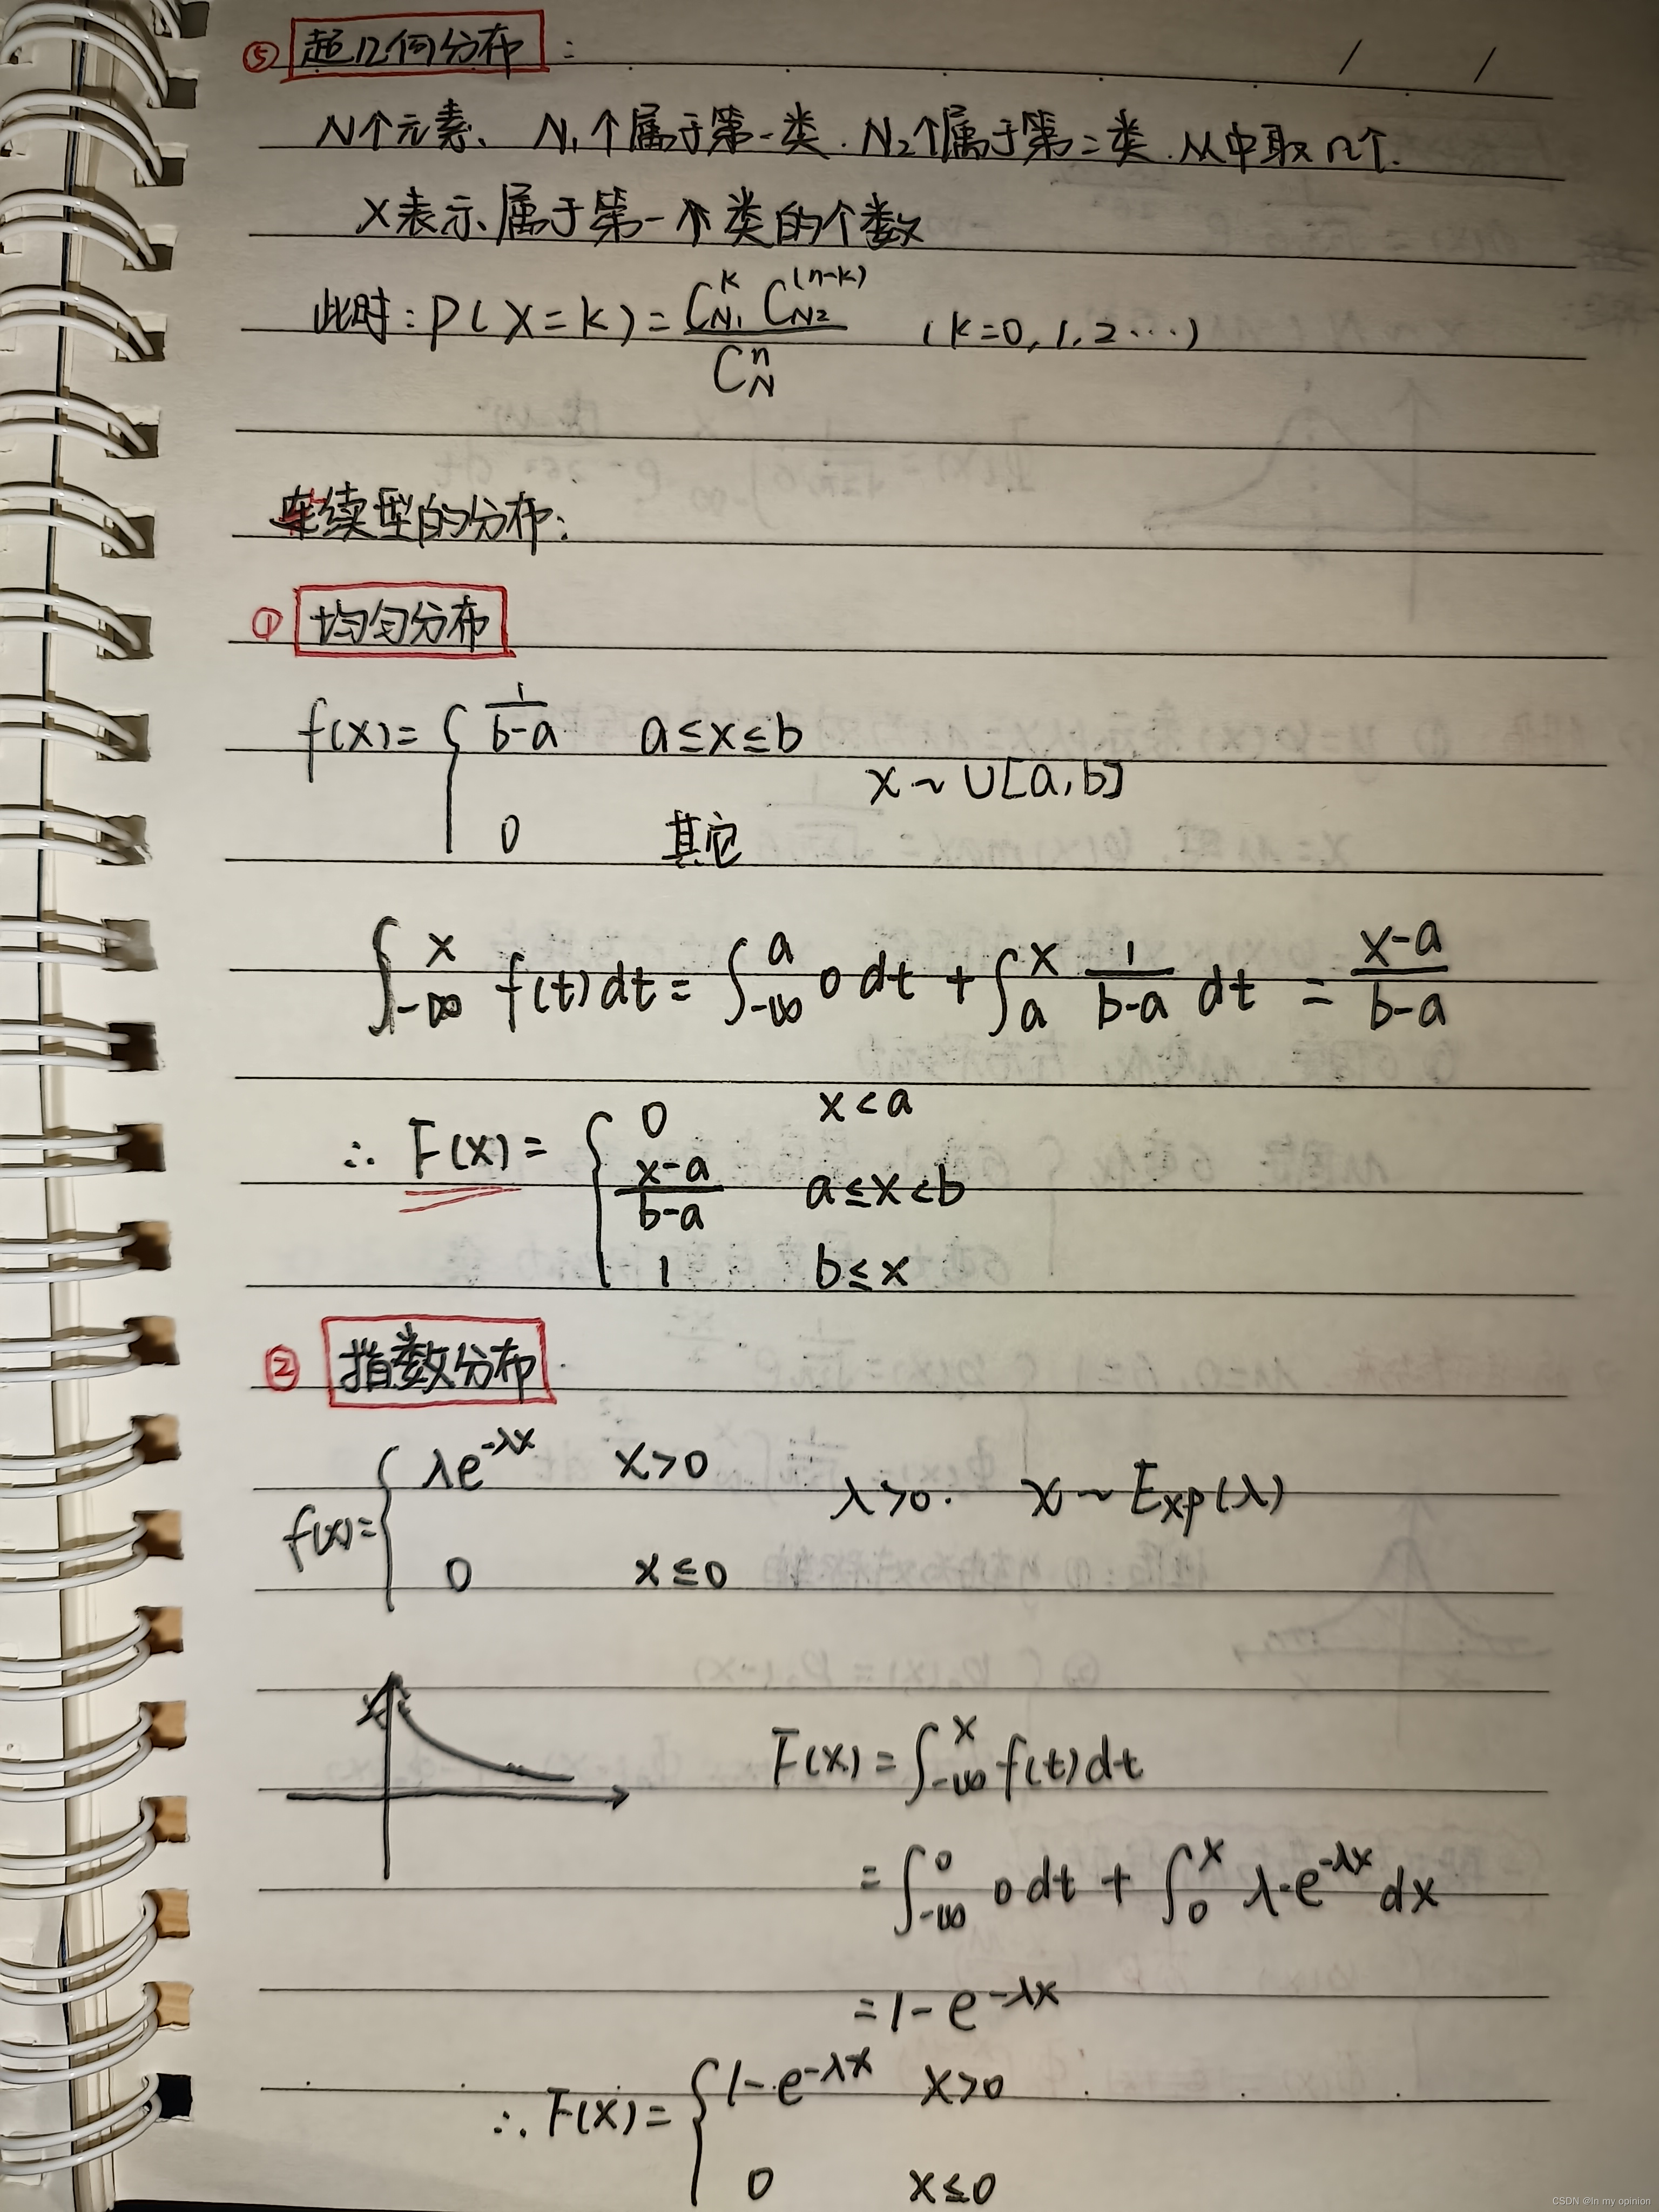 ⑤ 超几何分布：
N个元素、 N₁个属于第一类. N₂个属于第二类. 从中取n个.
X表示属于第一个类的个数
此时: P(X=k) = C_{N₁}^{k} C_{N₂}^{(n-k)} / C_{N}^{n} (k=0,1,2…)
连续型的分布:
① 均匀分布
f(x) = { 1/(b-a) a≤x≤b
x ~ U[a,b]
0 其它
∫_{-∞}^{x} f(t)dt = ∫_{-∞}^{a} 0 dt + ∫_{a}^{x} 1/(b-a) dt = (x-a)/(b-a)
∴ F(x) = { 0 x<a
(x-a)/(b-a) a≤x<b
1 b≤x
② 指数分布.
f(x) = { λe^{-λx} x>0
λ>0. x ~ Exp(λ)
0 x≤0
F(x) = ∫_{-∞}^{x} f(t)dt
= ∫_{-∞}^{0} 0 dt + ∫_{0}^{x} λ·e^{-λx} dx
= 1- e^{-λx}
∴ F(x) = { 1- e^{-λx} x>0
0 x≤0
CSDN @In my opinion